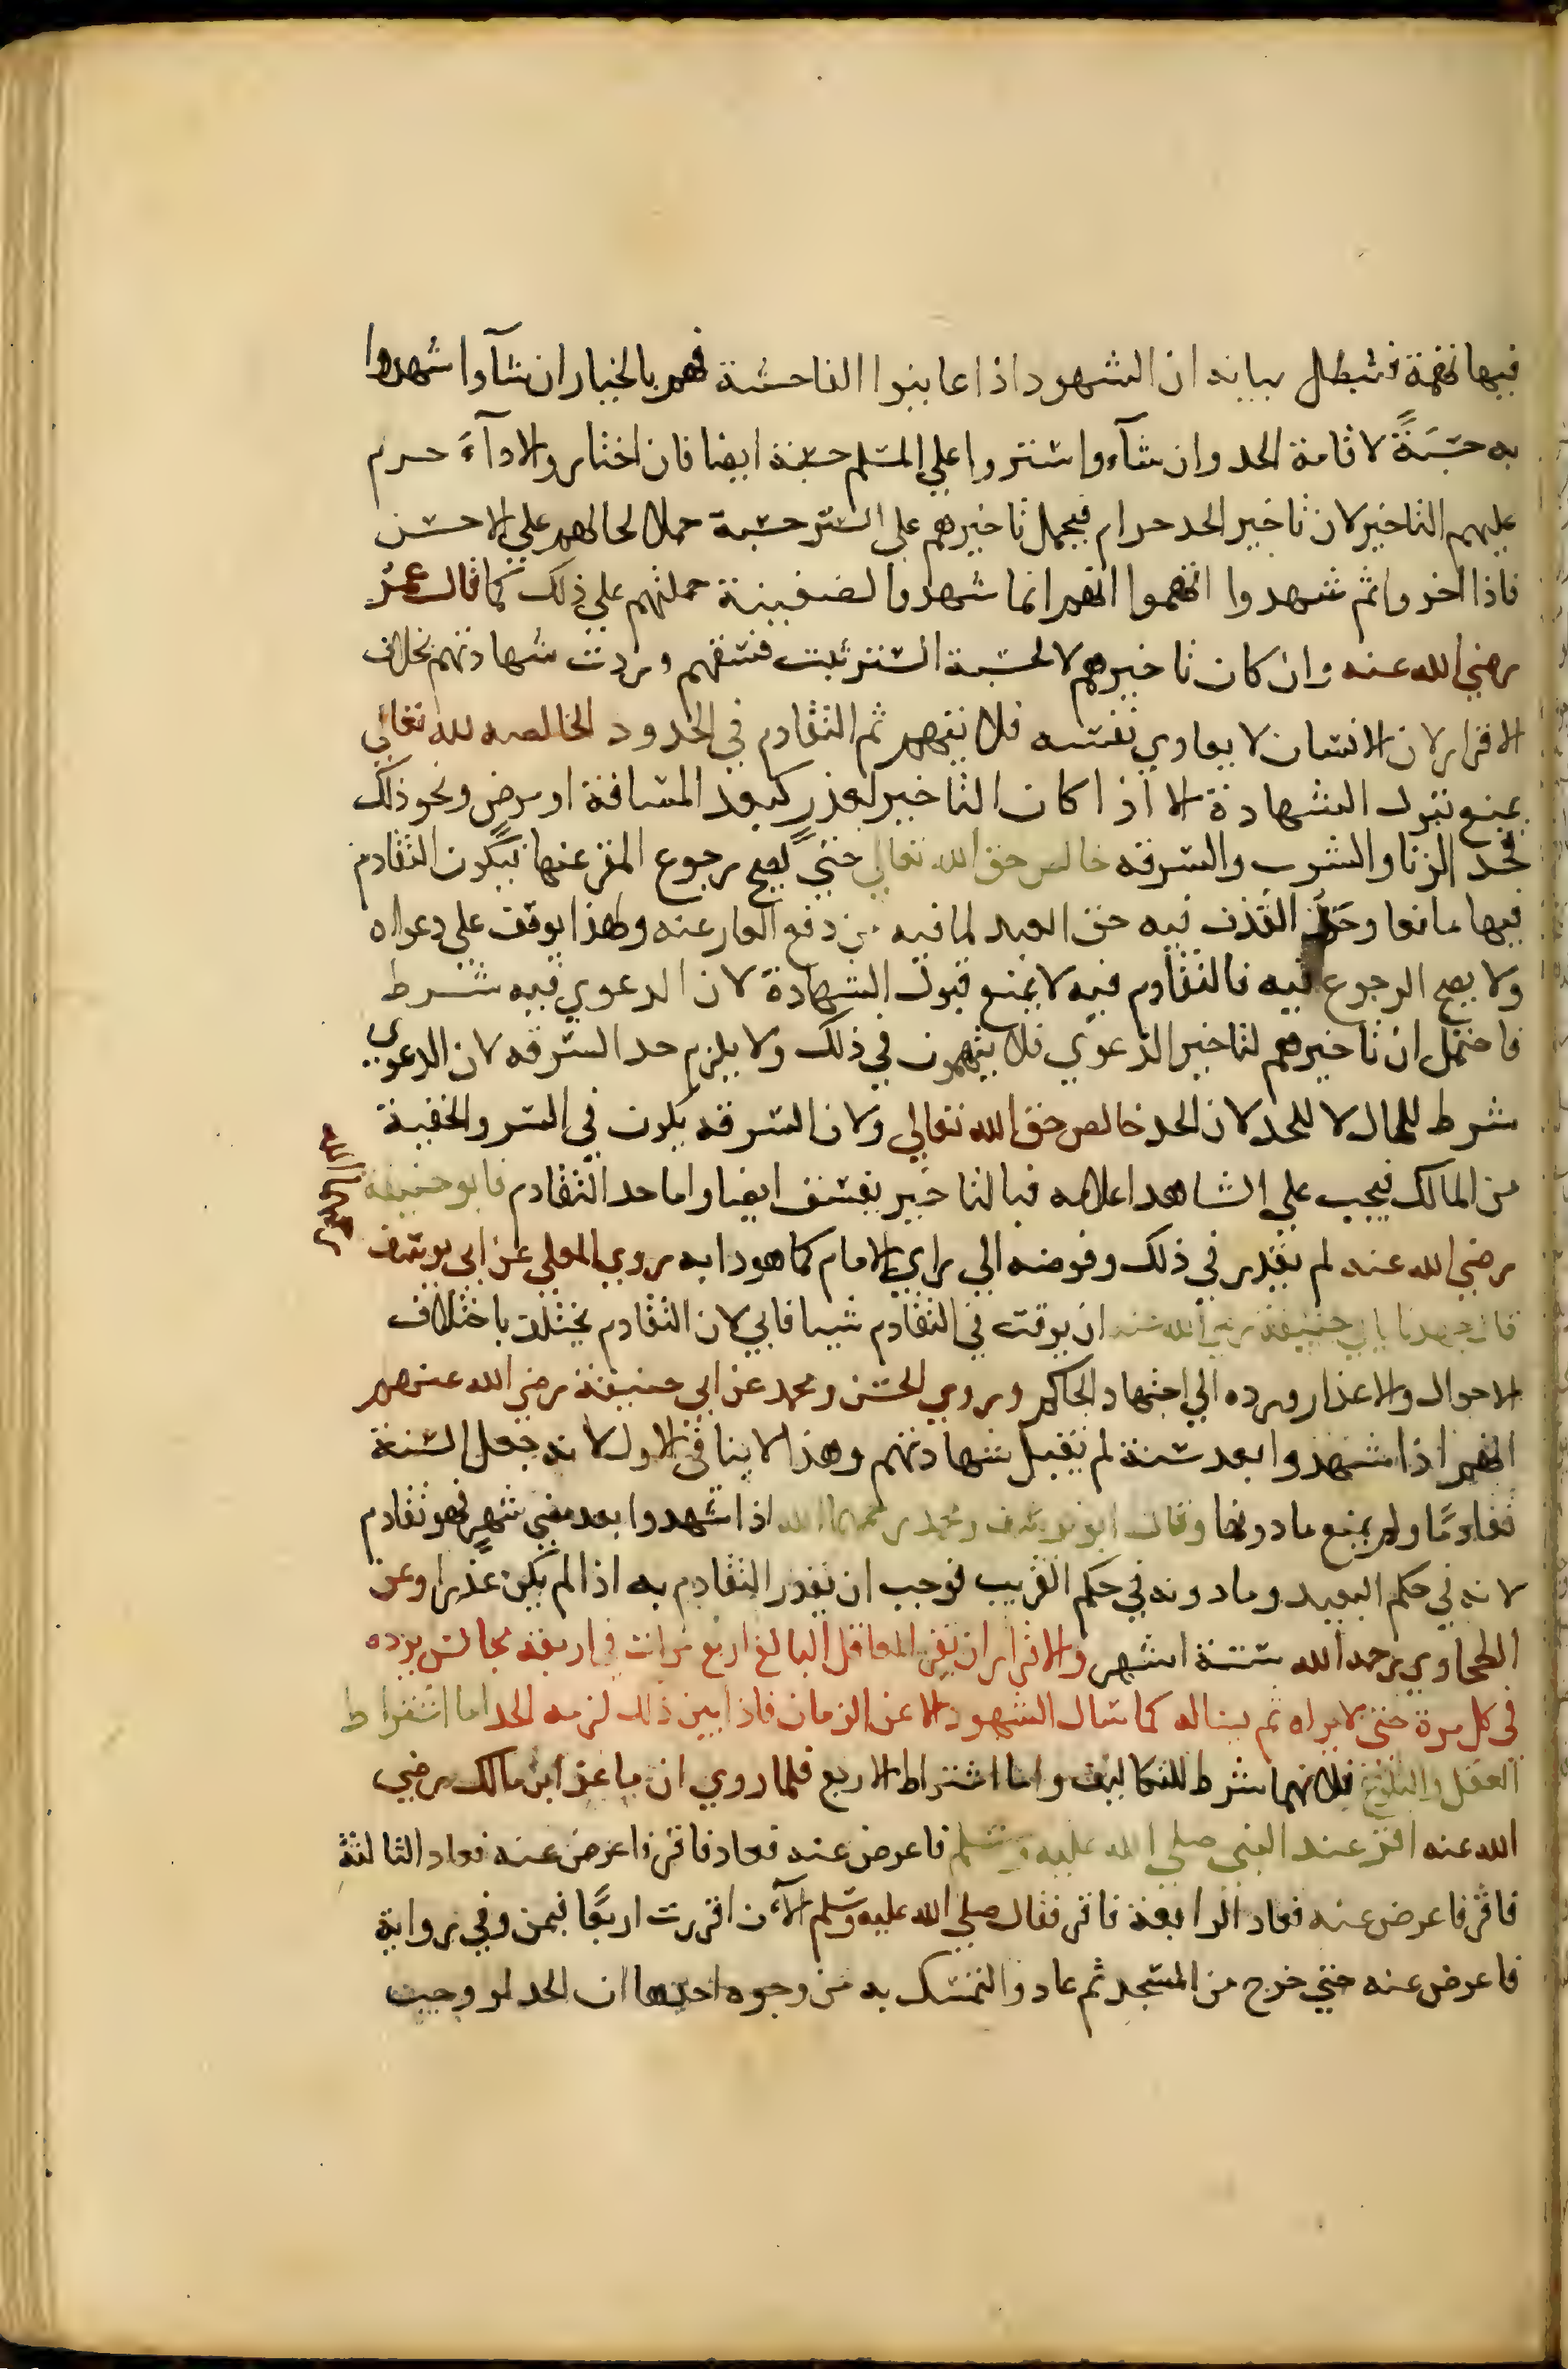 فيها تهمة فتبطل بيانه ان الشهود اذا عاينوا الفاحشة فهم بالخيار ان شآوا شهدوا
به حسَبَةً لاقامة الحد وان شآءوا ستروا على المسلم حسبة ايضا فان اختاروا الادآءَ حرم
عليهم التاخير لان تاخير الحد حرام فيحمل تاخيرهم على الستر حسبة حملا لحالهم على الاحسن
فاذا اخروا ثم شهدوا اتهموا انهم انما شهدوا لضغينة حملتهم على ذلك كما قال عمرُ
رضي الله عنه وان كان تاخيرهم لا لحسبة الستر ثبت فسقهم وردت شهادتهم بخلاف
الاقرار لان الانسان لا يعادي نفسه فلا يتهم ثم التقادم في الحدود الخالصه لله تعالى
يمنع قبول الشهادة الا اذا كان التاخير لعذرٍ كبعد المسافة او مرضٍ ونحو ذلك
فحد الزنا والشرب والسرقه خالص حق الله تعالى حتى يصح رجوع المقر عنها فيكون التقادم
فيها مانعا وحد القذف فيه حق العبد لما فيه من دفع العار عنه ولهذا يوقف على دعواه
ولا يصح الرجوع فيه فالتقادم فيه لا يمنع قبول الشهادة لان الدعوي فيه شرط
فاحتمل ان تاخيرهم لتاخير الدعوي فلا يتهمون في ذلك ولا يلزم حد السرقه لان الدعوي
شرط للمال لا للحد لان الحد خالص حق الله تعالى ولان السرقه يكون في السر والخفية
من المالك فيجب على الشاهد اعلامه فبالتاخير يفسق ايضا واما حد التقادم فابو حنيفة
رضي الله عنه لم يقدر في ذلك وفوضه الى راي الامام كما هو دابه روي المعلى عن ابى يوسف
قال جهدنا بابي حنيفة رضي الله عنه ان يوقت في التقادم شيا فابى لان التقادم يختلف باختلاف
الاحوال والاعذار ورده الى اجتهاد الحاكم وروي الحسن ومحمد عن ابي حنيفة رضي الله عنهم
انهم اذا شهدوا بعد سنة لم تقبل شهادتهم وهذا لا ينافى الاول لانه جعل السنة
تقادمًا ولم يمنع ما دونها وقال ابو يوسف ومحمد رحمهما الله اذا شهدوا بعد مضي شهرٍ فهو تقادم
لانه في حكم البعيد وما دونه في حكم القريب فوجب ان يقدر التقادم به اذا لم يكن عذر وعن
الطحاوي رحمه الله ستة اشهر والاقرار ان يقر العاقل البالغ اربع مرات في اربعة مجالس يرده
في كل مرة حتى لا يراه ثم يساله كما سال الشهود الا عن الزمان فاذا بين ذلك لزمه الحد اما اشتراط
العقل والبلوغ فلانهما شرط للتكاليف واما اشتراط الاربع فلما روي ان ماعز ابن مالك رضي
الله عنه اقر عند النبي صلي الله عليه وسلم فاعرض عنه فعاد فاقر فاعرض عنه فعاد الثالثة
فاقر فاعرض عنه فعاد الرابعة فاقر فقال صلي الله عليه وسلم الآن اقررت اربعًا فبمن وفي رواية
فاعرض عنه حتي خرج من المسجد ثم عاد والتمسك به من وجوه احدها ان الحد لو وجب